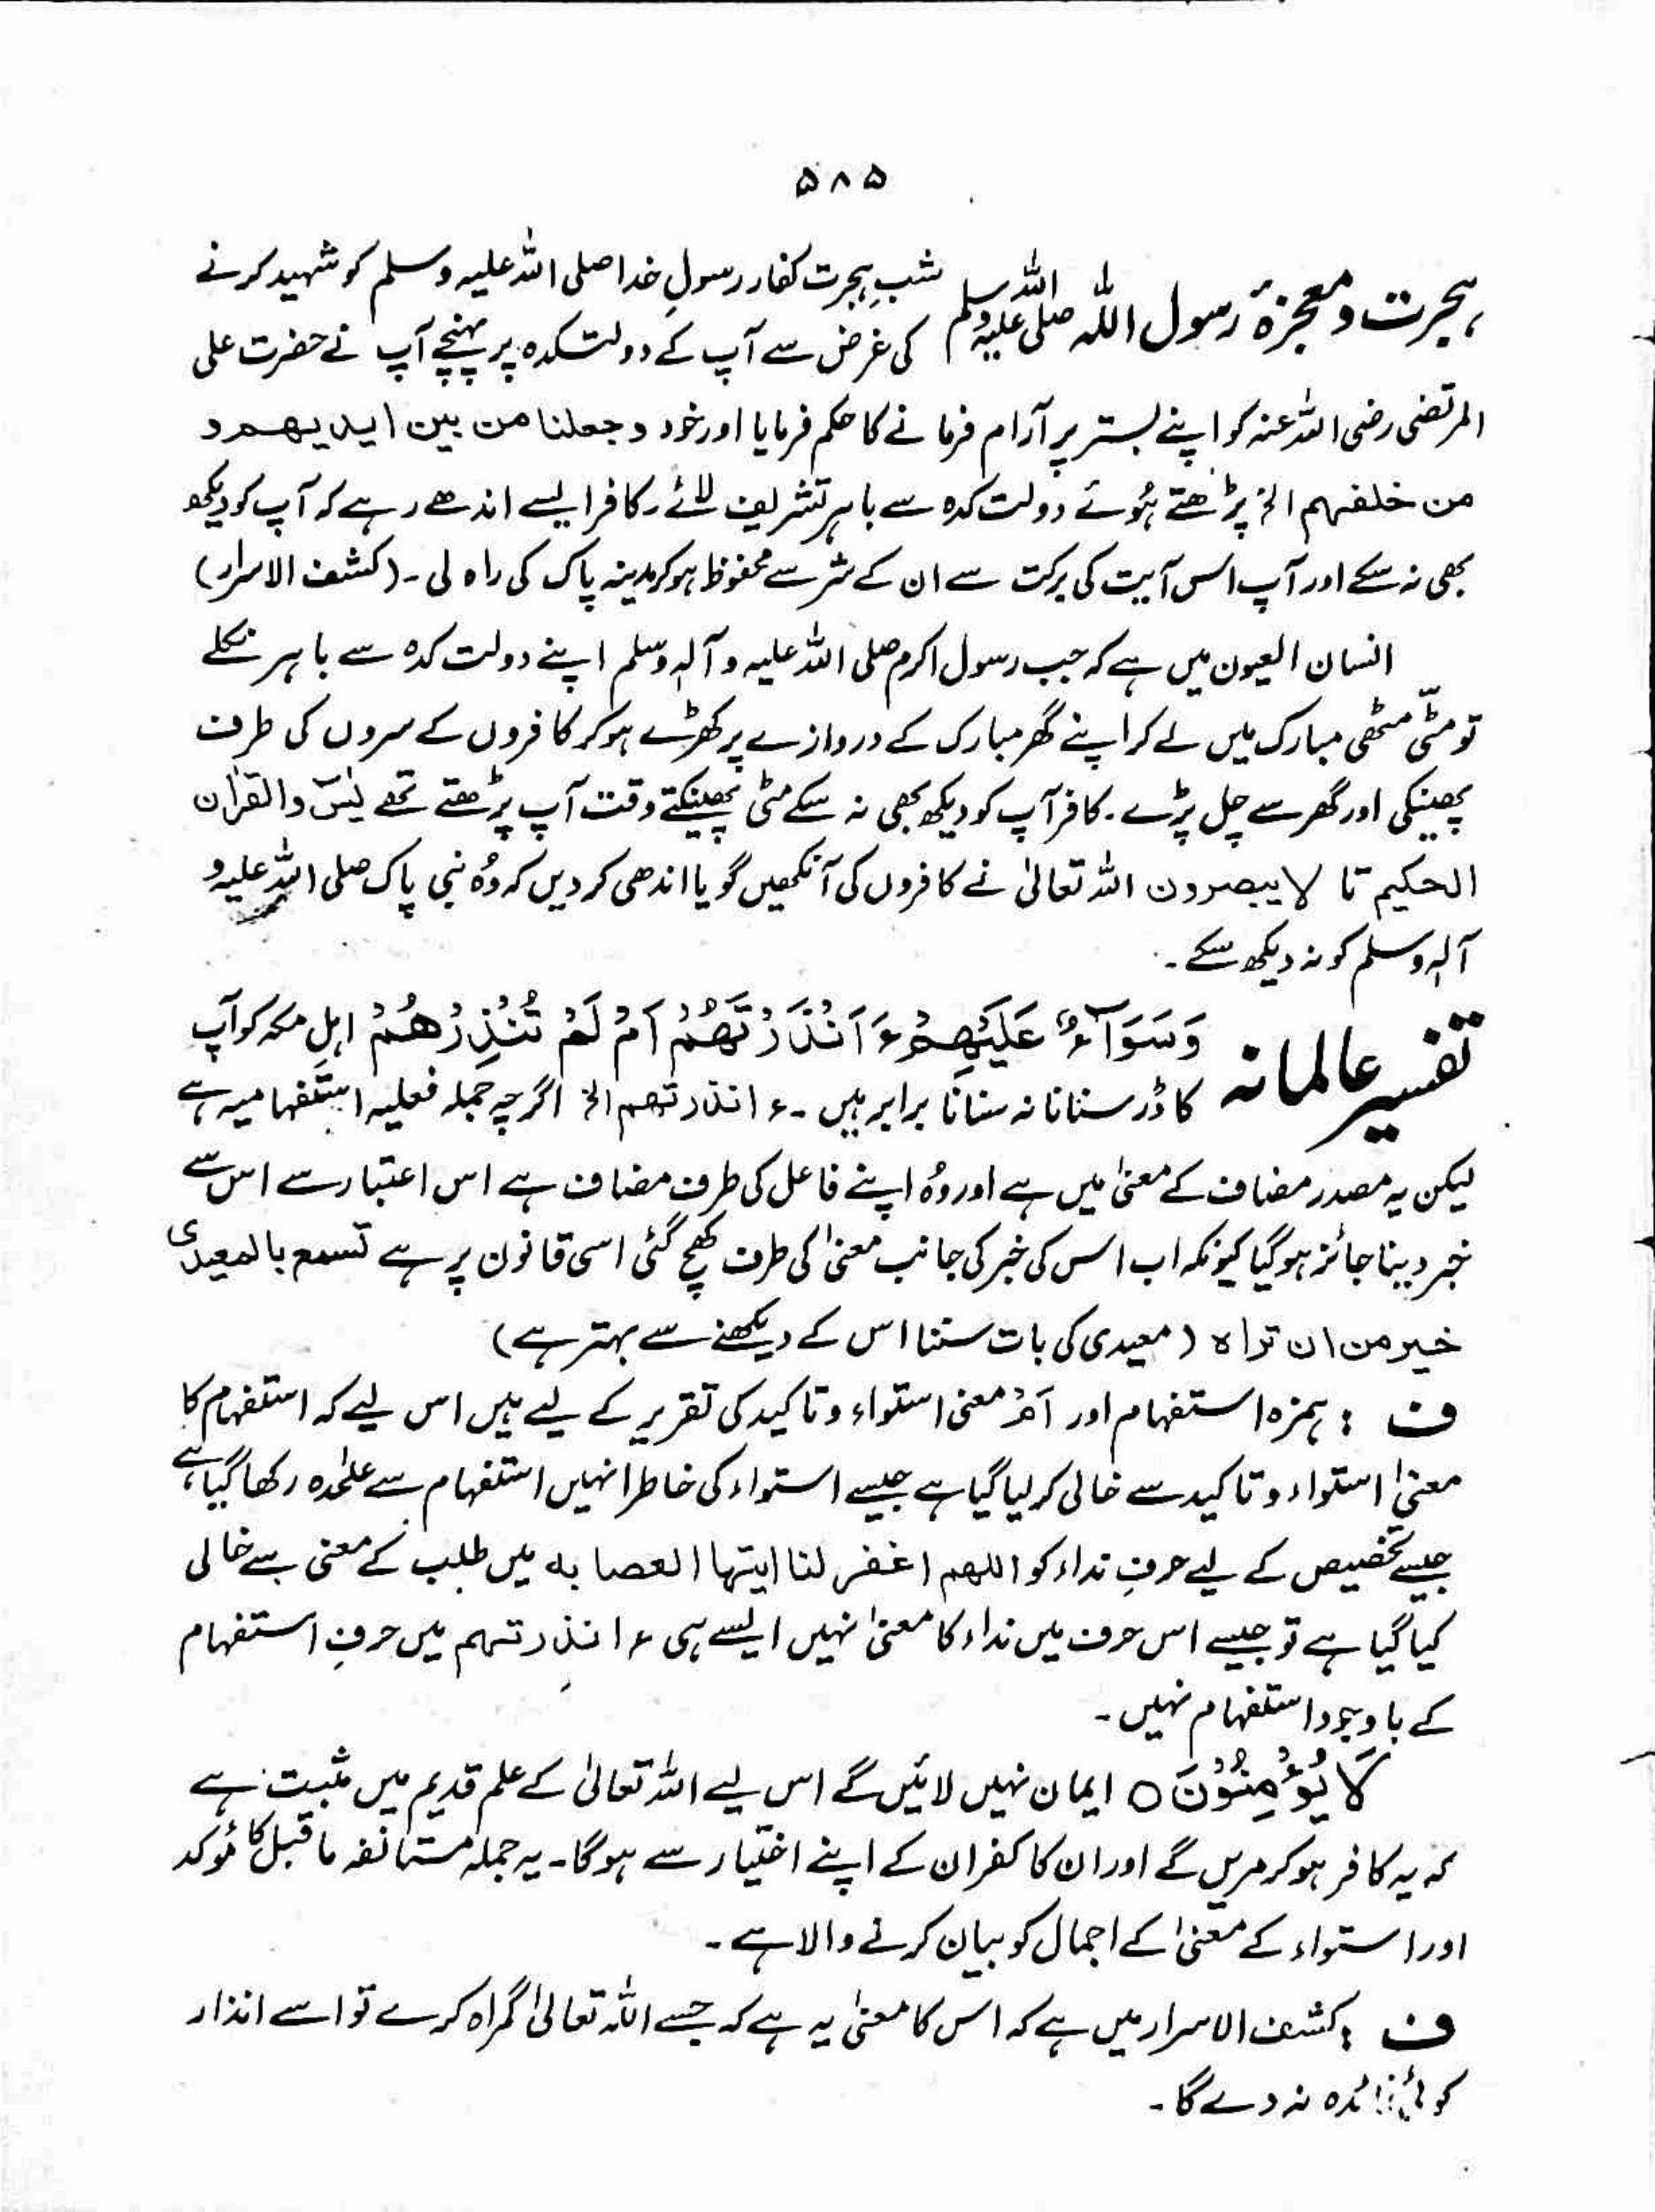 ۵۸۵
ہجرت و معجزۂ رسول اللہ صلی اللہ علیہ وسلم شبِ ہجرت کفار رسولِ خدا صلی اللہ علیہ وسلم کو شہید کرنے
کی غرض سے آپ کے دولتکدہ پر پہنچے آپ نے حضرت علی
المرتضٰی رضی اللہ عنہ کو اپنے بستر پر آرام فرمانے کا حکم فرمایا اور خود وجعلنا من بین ایدیھم و
من خلفہم الخ پڑھتے ہُوئے دولت کدہ سے باہر تشریف لائے۔ کافر ایسے اندھے رہے کہ آپ کو دیکھ
بھی نہ سکے اور آپ اس آیت کی برکت سے ان کے شر سے محفوظ ہو کر مدینہ پاک کی راہ لی۔ (کشف الاسرار)
انسان العیون میں ہے کہ جب رسول اکرم صلی اللہ علیہ وآلہٖ وسلم اپنے دولت کدہ سے باہر نکلے
تو مٹّی مٹھی مبارک میں لے کر اپنے گھر مبارک کے دروازے پر کھڑے ہو کر کافروں کے سروں کی طرف
پھینکی اور گھر سے چل پڑے۔ کافر آپ کو دیکھ بھی نہ سکے مٹی پھینکتے وقت آپ پڑھتے تھے یٰسٓ والقراٰن
الحکیم تا لا یبصرون اللہ تعالیٰ نے کافروں کی آنکھیں گویا اندھی کر دیں کہ وُہ نبی پاک صلی اللہ علیہ و
آلہٖ وسلم کو نہ دیکھ سکے۔
تفسیر عالمانہ وَسَوَآءٌ عَلَیْھِمْ ءَاَنْذَرْتَھُمْ اَمْ لَمْ تُنْذِرْھُمْ اہلِ مکہ کو آپ
کا ڈر سنانا نہ سنانا برابر ہیں۔ ءانذرتھم الخ اگرچہ جملہ فعلیہ استفہامیہ ہے
لیکن یہ مصدر مضاف کے معنیٰ میں ہے اور وُہ اپنے فاعل کی طرف مضاف ہے اس اعتبار سے اس سے
خبر دینا جائز ہو گیا کیونکہ اب اس کی خبر کی جانب معنیٰ کی طرف کھچ گئی اسی قانون پر ہے تسمع بالمعیدی
خیر من ان تراہ (معیدی کی بات سننا اس کے دیکھنے سے بہتر ہے)
ف : ہمزہ استفہام اور اَمْ معنی استواء و تاکید کی تقریر کے لیے ہیں اس لیے کہ استفہام کا
معنیٰ استواء و تاکید سے خالی کر لیا گیا ہے جیسے استواء کی خاطر انہیں استفہام سے علٰحدہ رکھا گیا ہے،
جیسے تخصیص کے لیے حرفِ نداء کو اللھم اغفر لنا ایتہا العصابہ میں طلب کے معنی سے خالی
کیا گیا ہے تو جیسے اس حرف میں نداء کا معنیٰ نہیں ایسے ہی ءانذرتہم میں حرفِ استفہام
کے باوجود استفہام نہیں۔
لَا یُؤْمِنُوْنَ ○ ایمان نہیں لائیں گے اس لیے اللہ تعالیٰ کے علم قدیم میں مثبت ہے
کہ یہ کافر ہو کر مریں گے اور ان کا کفر ان کے اپنے اختیار سے ہو گا۔ یہ جملہ مستانفہ ماقبل کا مُوکد
اور استواء کے معنیٰ کے اجمال کو بیان کرنے والا ہے۔
ف : کشف الاسرار میں ہے کہ اس کا معنیٰ یہ ہے کہ جسے اللہ تعالیٰ گمراہ کرے تو اسے انذار
کوئی فائدہ نہ دے گا۔